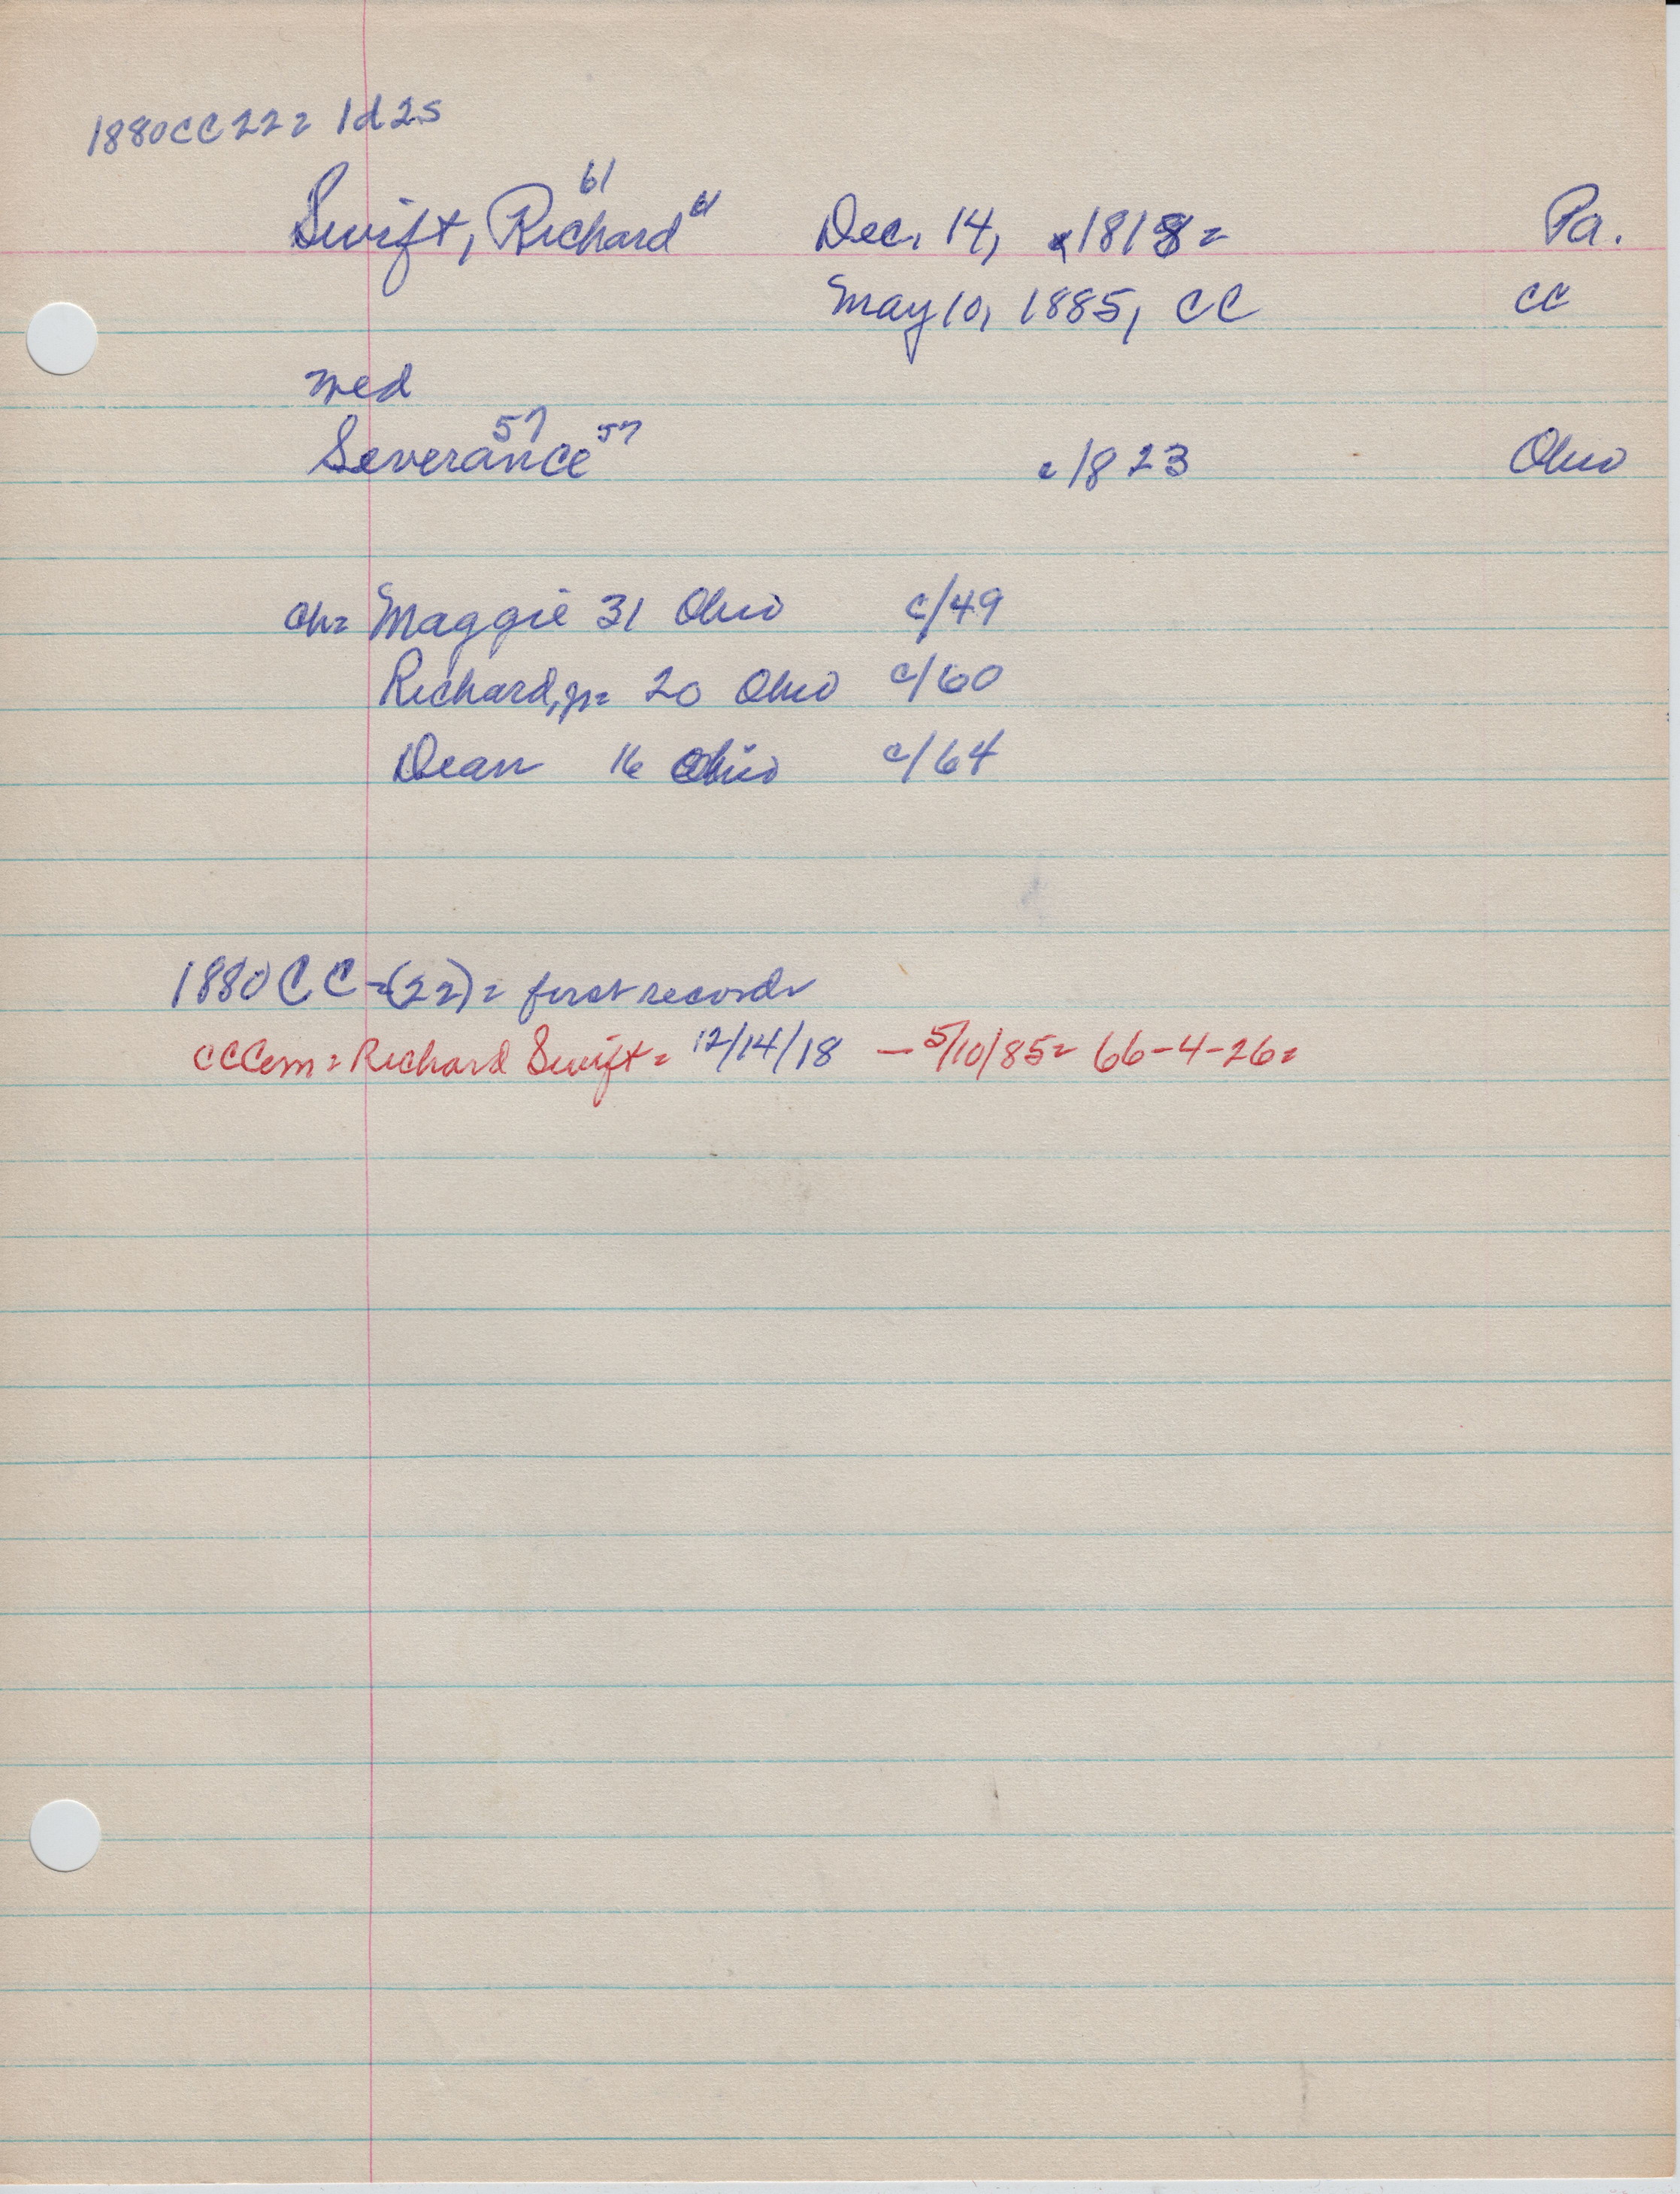 1880CC22= 1d2s
61
Swift, Richard 61 Dec. 14, c1818= Pa.
May 10, 1885, CC CC
med
57
Severance 57 c1823 Ohio
ch= Maggie 31 Ohio c/49
Richard, jr= 20 Ohio c/60
Dean 16 Ohio c/64
1880 CC-(22)= first records
CCCem= Richard Swift= 12/14/18 — 5/10/85= 66-4-26=